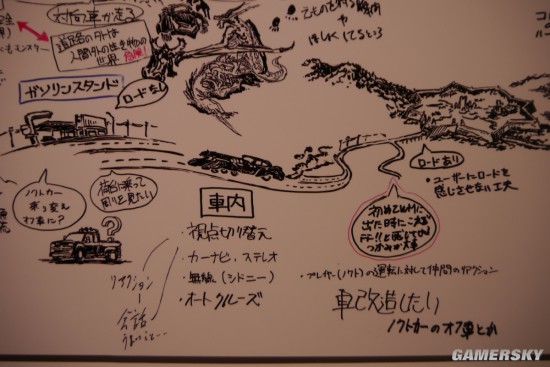 対向車が走る
道路の外は
人間外の生き物の
世界 危険!
ガソリンスタンド
ロードなし
ほしくてるところ
ノクトカー
乗り変え
オフ車に?
荷台に乗って
周りを見たい
?
車内
・視点切り替え
・カーナビ、ステレオ
・無線(シドニー)
・オートクルーズ
リアクション
会話
ロードあり
・ユーザーにロードを
感じさせない工夫
初めて
出た時に
FF!!と感じて
つかみが大事
・プレイヤー(ノクト)の運転に対して仲間のリアクション
車改造したい
ノクトカーのオフ車とか
GAMERSKY